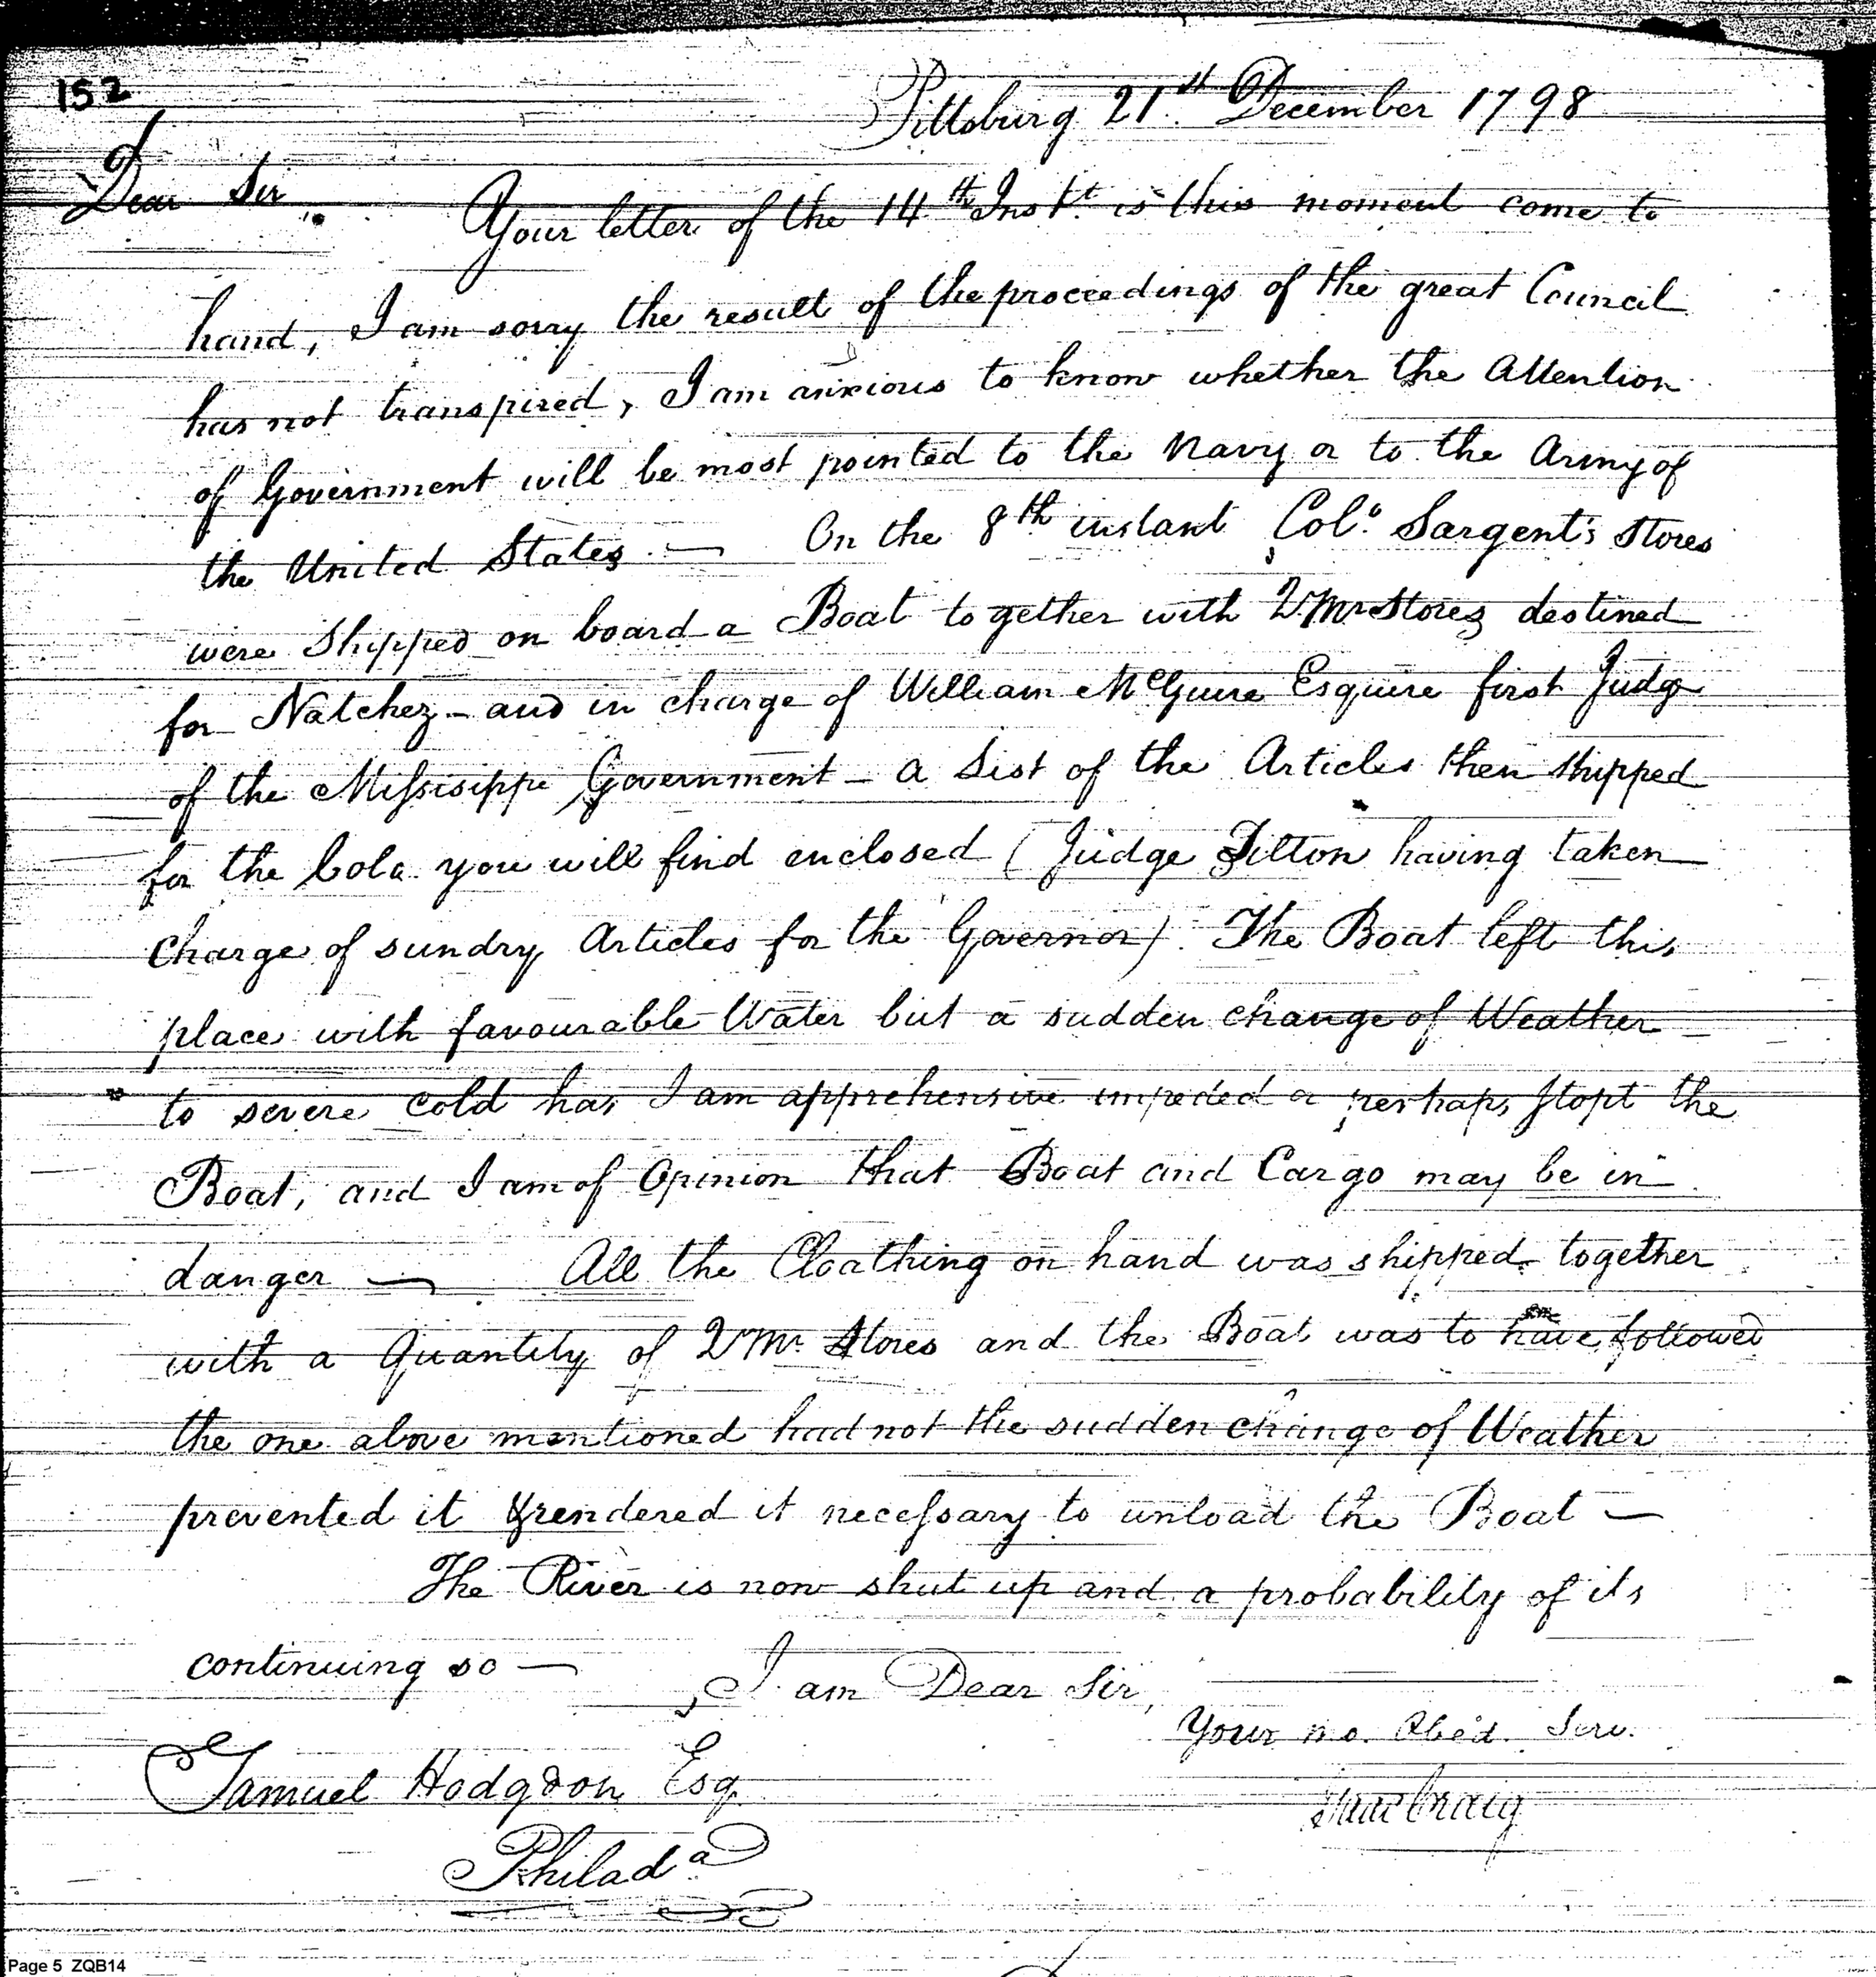 152
Pittsburg 21st December 1798
Dear Sir
Your letter of the 14th Inst. is this moment come to
hand, I am sorry the result of the proceedings of the great Council
has not transpired, I am anxious to know whether the Attention
of Government will be most pointed to the Navy or to the Army of
the United States — On the 8th instant Colo. Sargent's Stores
were Shipped on board a Boat together with QMr Stores destined
for Natchez - and in charge of William McGuire Esquire first Judge
of the Missisippi Government - a List of the Articles then shipped
for the Colo. you will find enclosed (Judge Tilton having taken
charge of sundry Articles for the Governor). The Boat left this
place with favourable Water but a sudden change of Weather
to severe cold has I am apprehensive impeded or perhaps stopt the
Boat, and I am of Opinion that Boat and Cargo may be in
danger — All the Cloathing on hand was shipped together
with a Quantity of QMr. Stores and the Boat was to have followed
the one above mentioned had not the sudden change of Weather
prevented it & rendered it necessary to unload the Boat —
The River is now shut up and a probability of its
continuing so —
I am Dear Sir,
Your mo. Obed. Serv.
Isaac Craig
Samuel Hodgdon Esq
Philada.
Page 5 ZQB14